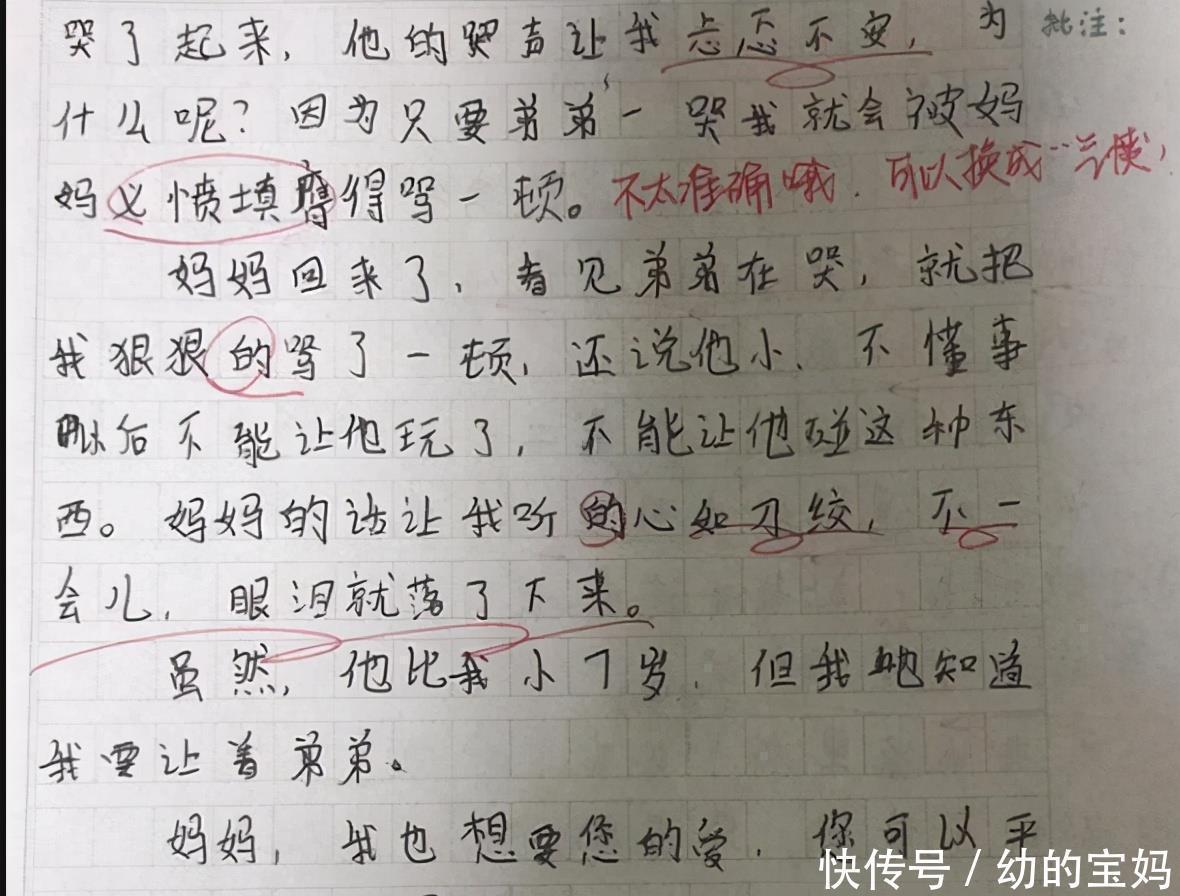 哭了起来，他的哭声让我忐忑不安，为
批注：
什么呢？因为只要弟弟一哭我就会被妈
妈义愤填膺得骂一顿。
不太准确哦．可以换成“
妈妈回来了，看见弟弟在哭，就把
我狠狠的骂了一顿，还说他小、不懂事
以后不能让他玩了，不能让他碰这种东
西。妈妈的话让我听的心如刀绞，不一
会儿，眼泪就落了下来。
虽然，他比我小7岁，但我也知道
我要让着弟弟。
妈妈，我也想要您的爱，您可以平
快传号 / 幼的宝妈